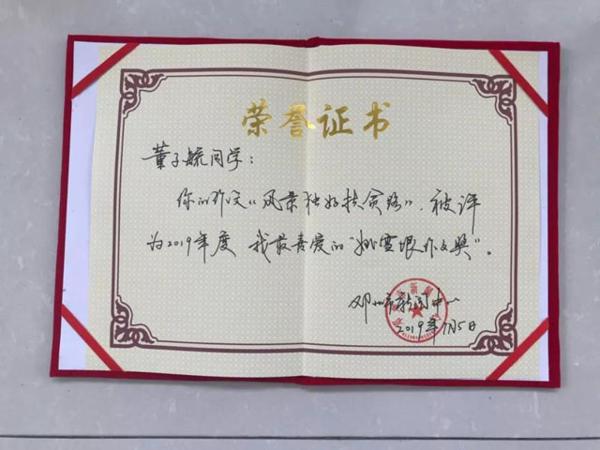 荣誉证书
董子毓同学：
你的作文《风景独好扶贫路》，被评
为2019年度 我最喜爱的"姚雪垠作文奖"。
邓州市新闻中心
2019年7月5日